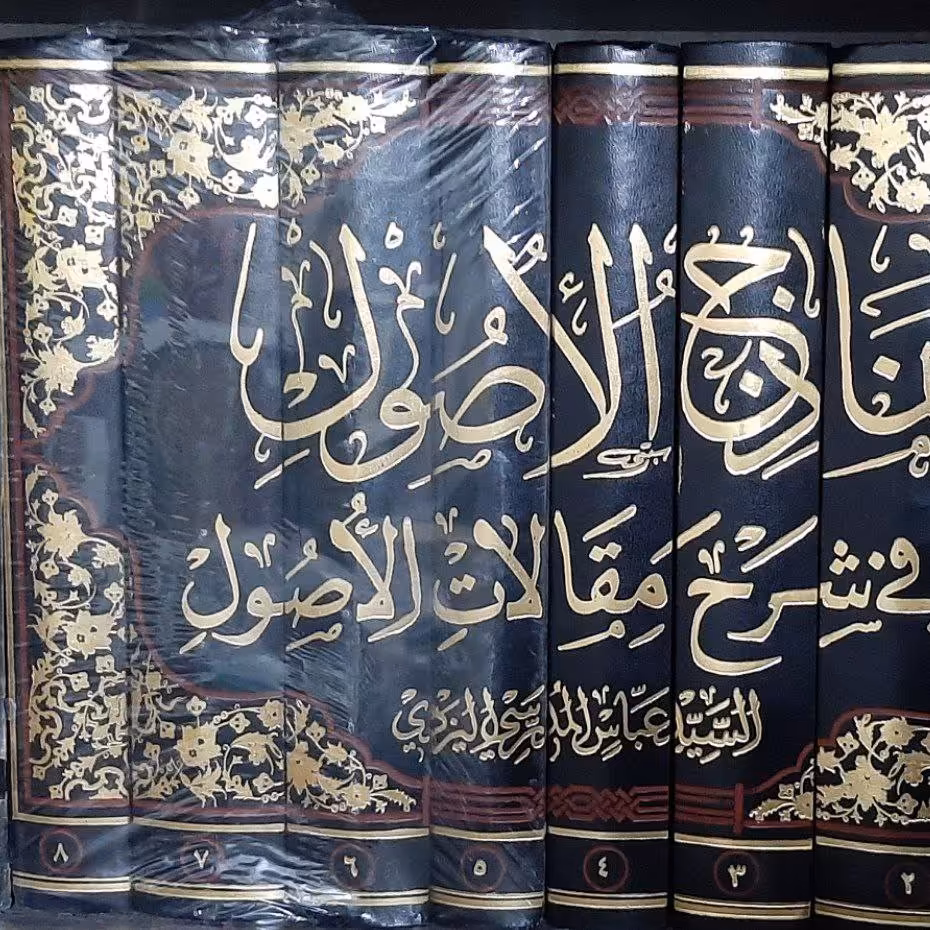 الأُصُول
في شَرْحِ مَقَالاتِ الأُصُولِ
السَّيِّد عَبَّاس المُدَرِّسِي اليَزْدِي
٢ ٣ ٤ ٥ ٦ ٧ ٨